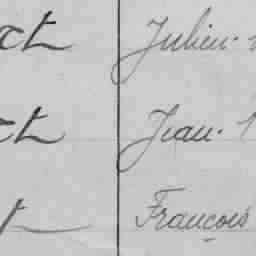 ct Julien-
ct Jean-
t François